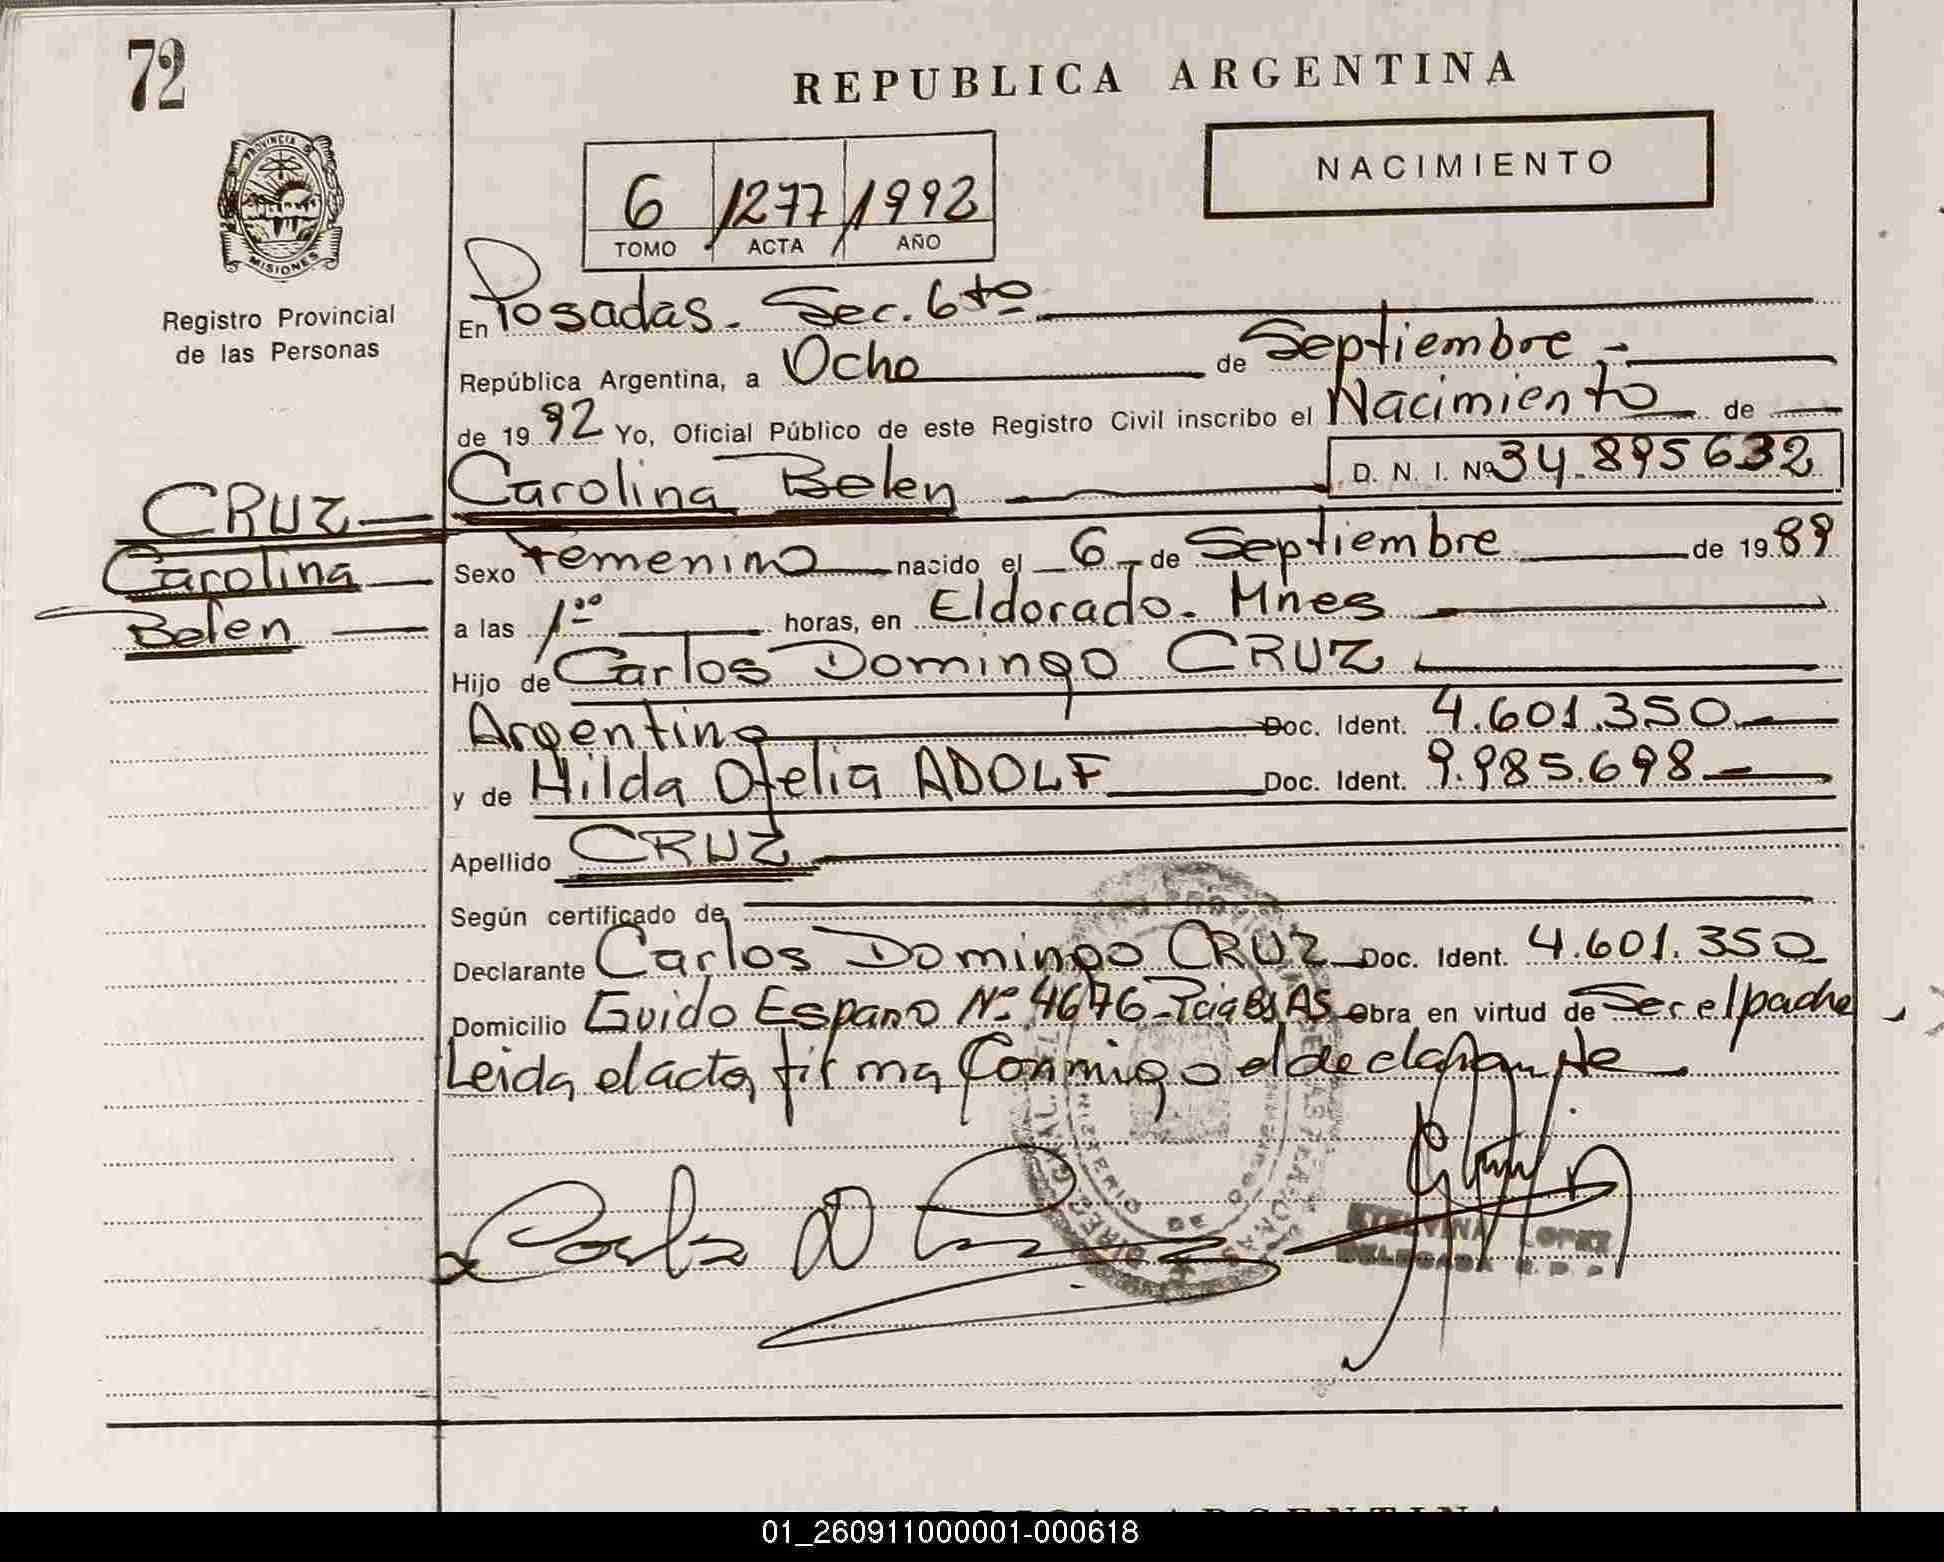 72
REPUBLICA ARGENTINA
NACIMIENTO
6 1277 1992
TOMO ACTA AÑO
PROVINCIA DE
MISIONES
Registro Provincial
de las Personas
En Posadas. Sec. 6to
República Argentina, a Ocho de Septiembre.-
de 19 92 Yo, Oficial Público de este Registro Civil inscribo el Nacimiento de
Carolina Belen D. N. I. Nº 34.895632
CRUZ
Carolina
Belen
Sexo Femenino nacido el 6 de Septiembre de 19 89
a las 1:00 horas, en Eldorado. Mnes
Hijo de Carlos Domingo CRUZ
Argentino Doc. Ident. 4.601.350
y de Hilda Ofelia ADOLF Doc. Ident. 9.985.698
Apellido CRUZ
Según certificado de
Declarante Carlos Domingo CRUZ Doc. Ident. 4.601.350
Domicilio Guido Espano Nº 4676-Pcia Bs As obra en virtud de Ser el padre
Leida el acta firma Conmigo el declarante
MINISTERIO DE
ETELVINA LOPEZ
DELEGADA R. P. P.
01_260911000001-000618